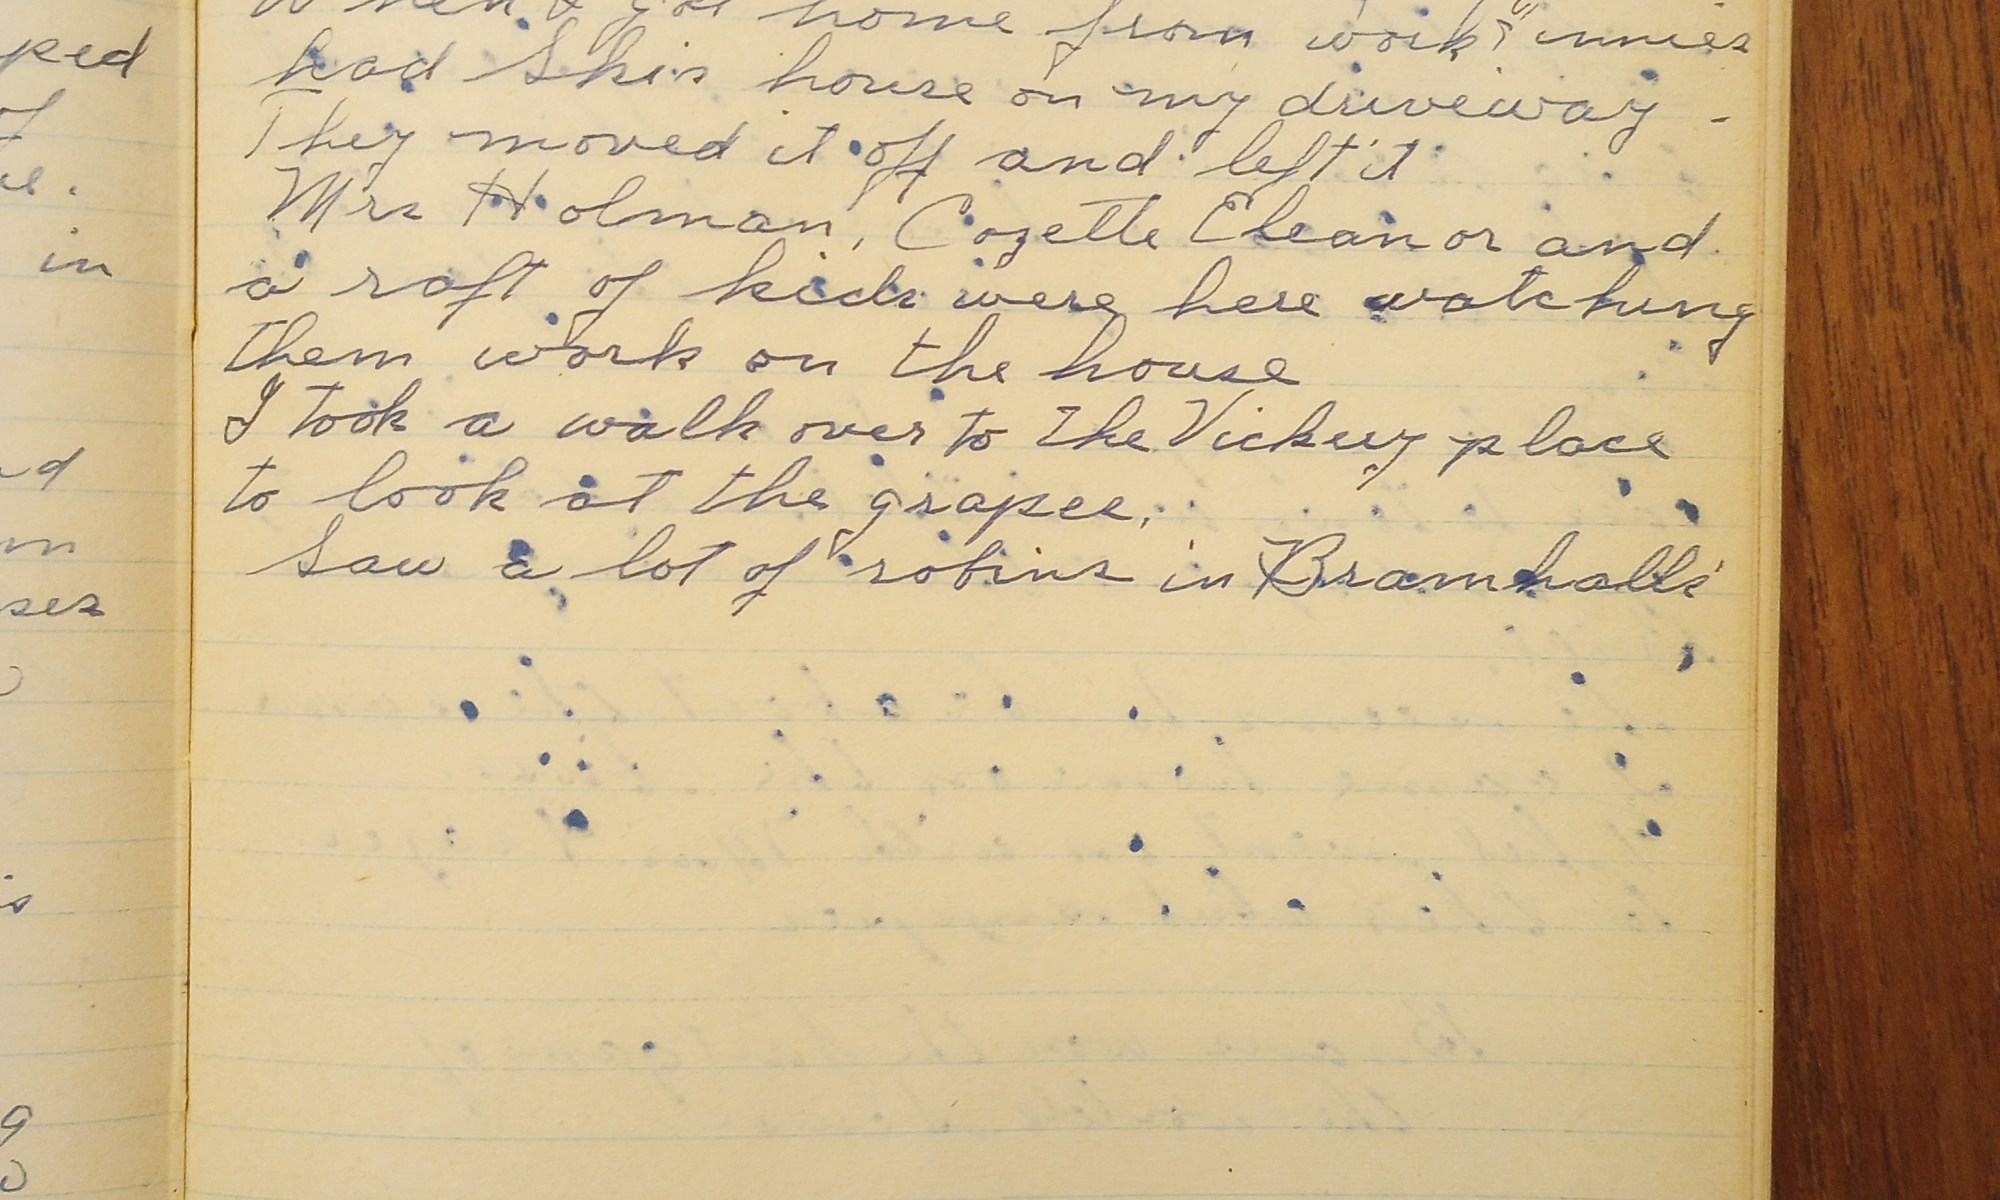 When I got home from work
had Skis house on my driveway -
They moved it off and left it
Mrs Holman, Cozette Eleanor and
a raft of kids were here watching
them work on the house
I took a walk over to the Vickery place
to look at the grapes.
Saw a lot of robins in Bramhalls